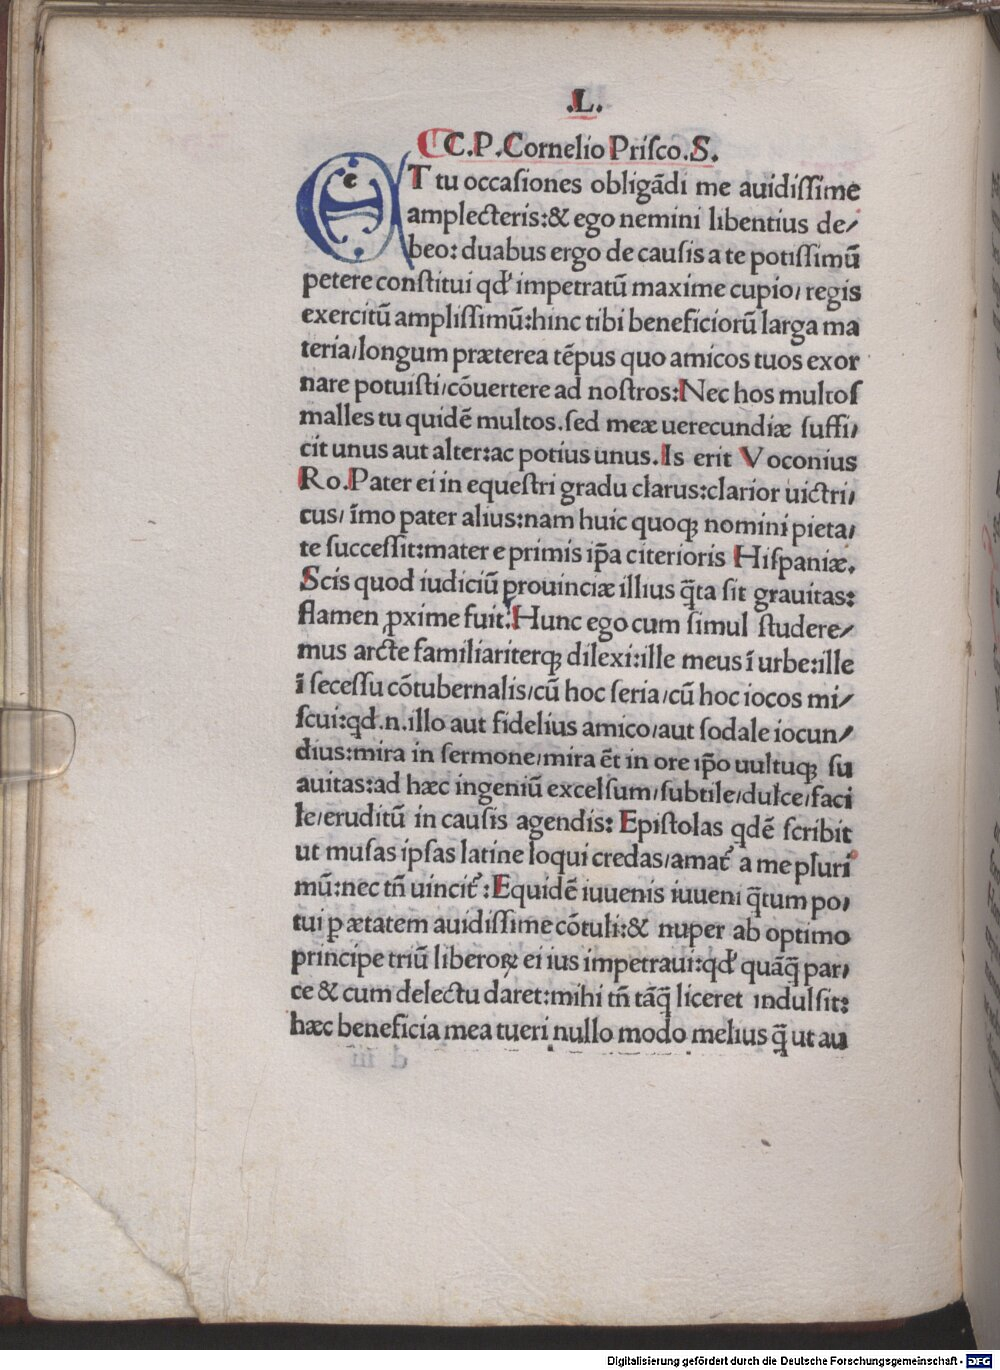 .L.
C.P.Cornelio Prisco.S.
ET tu occasiones obligādi me auidissime
amplecteris:& ego nemini libentius de/
beo: duabus ergo de causis a te potissimū
petere constitui qđ impetratū maxime cupio/ regis
exercitū amplissimū:hinc tibi beneficiorū larga ma
teria/longum præterea tēpus quo amicos tuos exor
nare potuisti/cōuertere ad nostros:Nec hos multos
malles tu quidē multos.sed meæ uerecundiæ suffi/
cit unus aut alter:ac potius unus.Is erit Voconius
Ro.Pater ei in equestri gradu clarus:clarior uictri/
cus/ īmo pater alius:nam huic quoqꝫ nomini pieta/
te successit:mater e primis ip̄a citerioris Hispaniæ.
Scis quod iudiciū prouinciæ illius q̄ta sit grauitas:
flamen ꝓxime fuit.Hunc ego cum simul studere/
mus arcte familiariterqꝫ dilexi:ille meus ī urbe:ille
ī secessu cōtubernalis/cū hoc seria/cū hoc iocos mi/
scui:qđ.n.illo aut fidelius amico/aut sodale iocun/
dius:mira in sermone/mira ēt in ore ip̄o uultuqꝫ su
auitas:ad hæc ingeniū excelsum/subtile/dulce/faci
le/eruditū in causis agendis: Epistolas qdē scribit
ut musas ipsas latine loqui credas/amat᷑ a me pluri
mū:nec tn̄ uincit᷑:Equidē iuuenis iuueni q̄tum po/
tui ꝑ ætatem auidissime cōtuli:& nuper ab optimo
principe triū liberoꝝ ei ius impetraui:qđ quāq̄ par/
ce & cum delectu daret:mihi tn̄ tāq̄ liceret indulsit:
hæc beneficia mea tueri nullo modo melius q̄ ut au
Digitalisierung gefördert durch die Deutsche Forschungsgemeinschaft - DFG